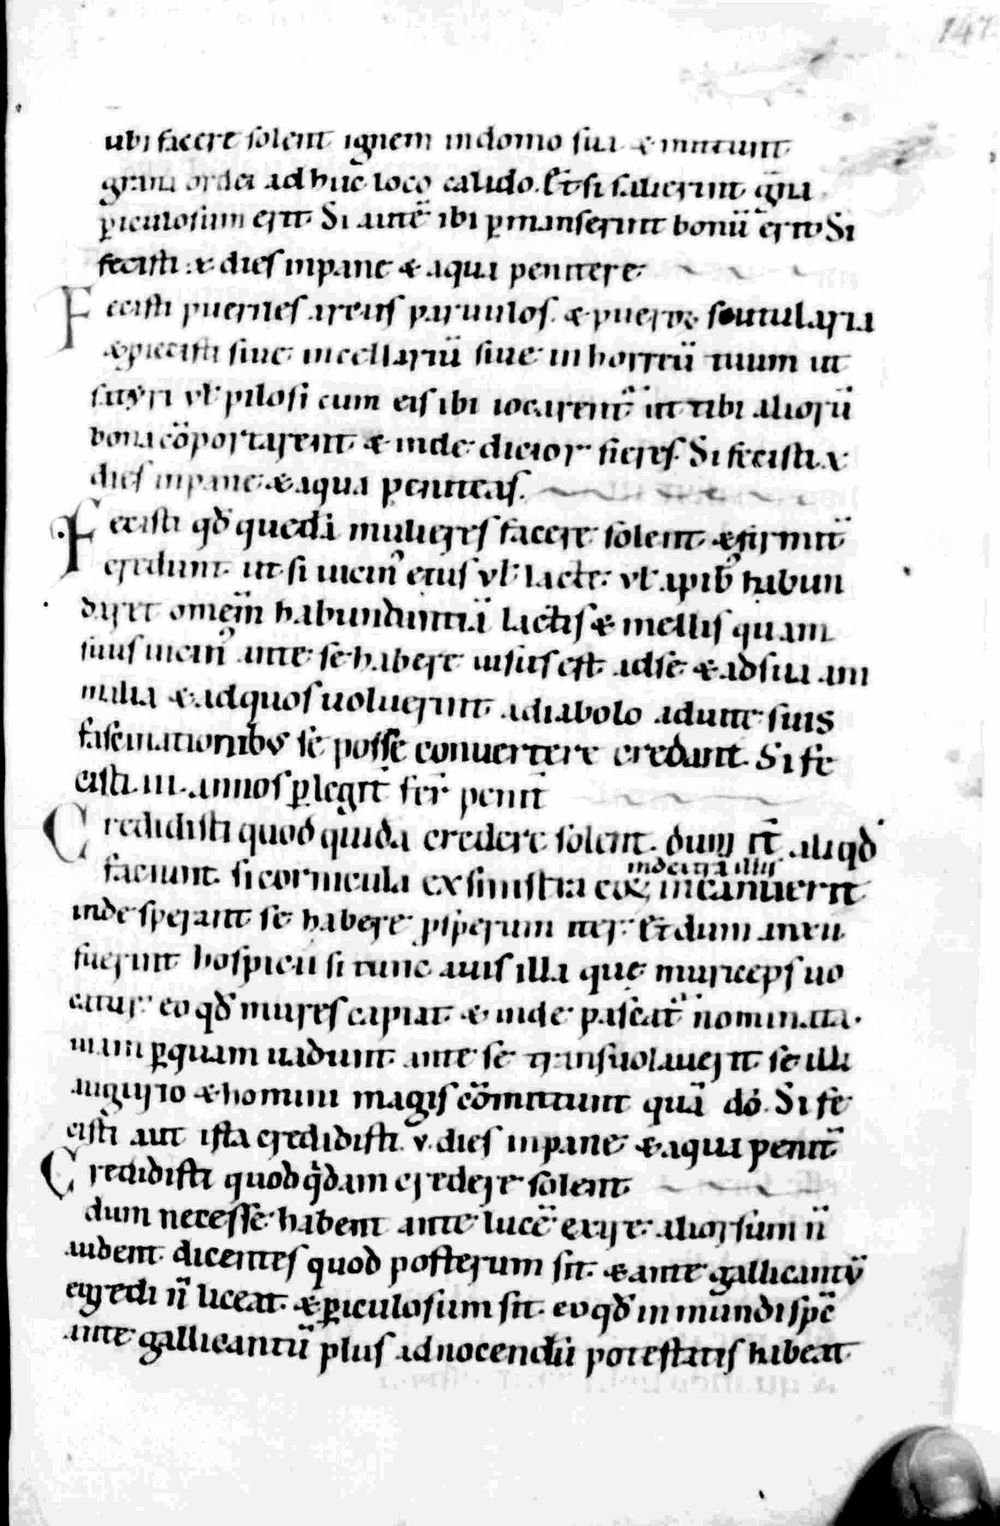 147
ubi facere solent ignem in domo sua & mittunt
grana ordei adhuc loco calido. Et si salierint gña
ꝑiculosum erit Si autē ibi ꝑmanserint bonū erit Si
fecisti .x. dies inpane & aqua penitere
Fecisti pueriles arcus paruulos. & pueroꝝ sutularia
& ꝓiecisti siue incellariū siue in horreū tuum ut
satyri vł pilosi cum eis ibi iocarent᷑ ut tibi aliorū
bona cōportarent & inde dicior fieres. Si fecisti .x.
dies inpane & aqua peniteas.
Fecisti qđ quedā mulieres facere solent & firmit̄
credunt ut si uicin᷒ eius vł lacte vł apib᷒ habun
daret omem̄ habundantiā lactis & mellis quam
suus uicin᷒ ante se habere uisus est adse & adsua ani
malia & adquos uoluerint adiabolo adiute suis
fascinationibꝰ se posse conuertere credant. Si fe
cisti .iii. annos ꝑ legit̄ fer̄ penit̄
Credidisti quod quida credere solent. dum it̄ aliqđ
faciunt. si cornicula ex sinistra eoꝝ indextrā illis incanuerit
inde sperant se habere ꝓsperum iter. Et dum anxii
fuerint hospicii si tunc auis illa que muriceps uo
catur eo qđ mures capiat & inde pascat᷑ nominata.
uiam ꝑquam uadunt ante se transuolauerit se illi
augurio & homini magis cōmittunt quā dō. Si fe
cisti aut ista credidisti .v. dies inpane & aqua penit̄
Credidisti quod qͥdam credere solent
dum necesse habent ante lucē exire aliorsum ñ
audent dicentes quod posterum sit & ante gallicantū
egredi ñ liceat & ꝑiculosum sit eo qđ inmundi spc̄
ante gallicantū plus adnocendū potestatis habeat